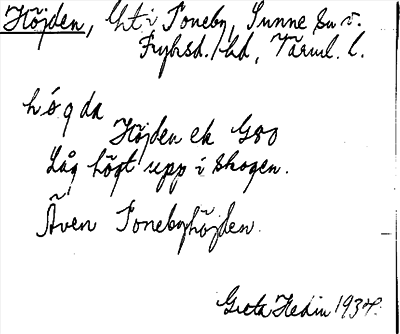 Höjden, Ht i Toneby, Sunne sn v.
Fryksd. hd, Värml. l.
högda
Höjden ek G80
Låg högt upp i skogen.
Även Tonebyhöjden.
Greta Hedin 1934.